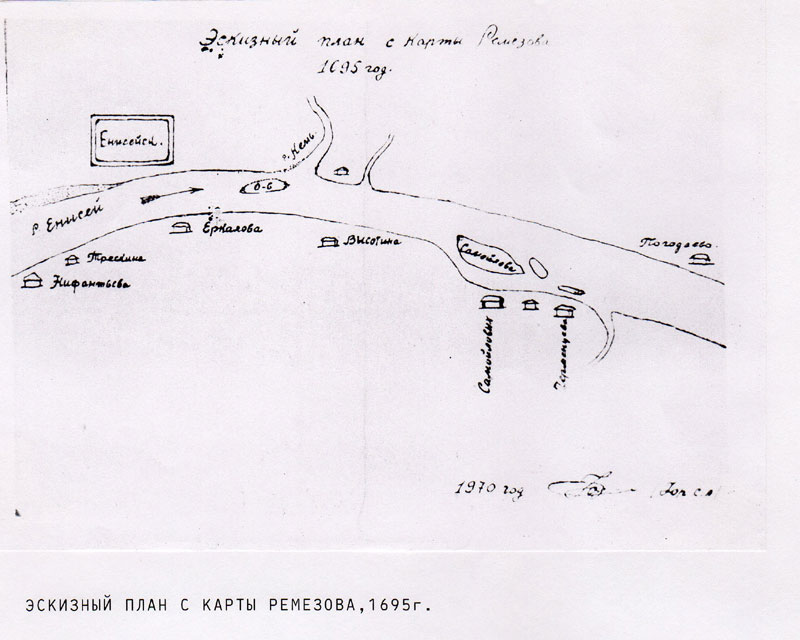 Эскизный план с карты Ремезова
1695 год.
Енисейск.
р. Кемь
О-в
р. Енисей
Еркалова
Высотина
Погодаево.
Трескина
Нифантьева
Самойлова
Самойловых
Черменцева
1970 год
ЭСКИЗНЫЙ ПЛАН С КАРТЫ РЕМЕЗОВА,1695г.